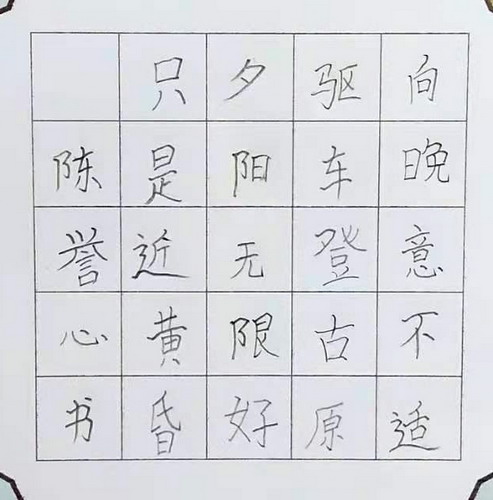 向晚意不适
驱车登古原
夕阳无限好
只是近黄昏
陈誉心书